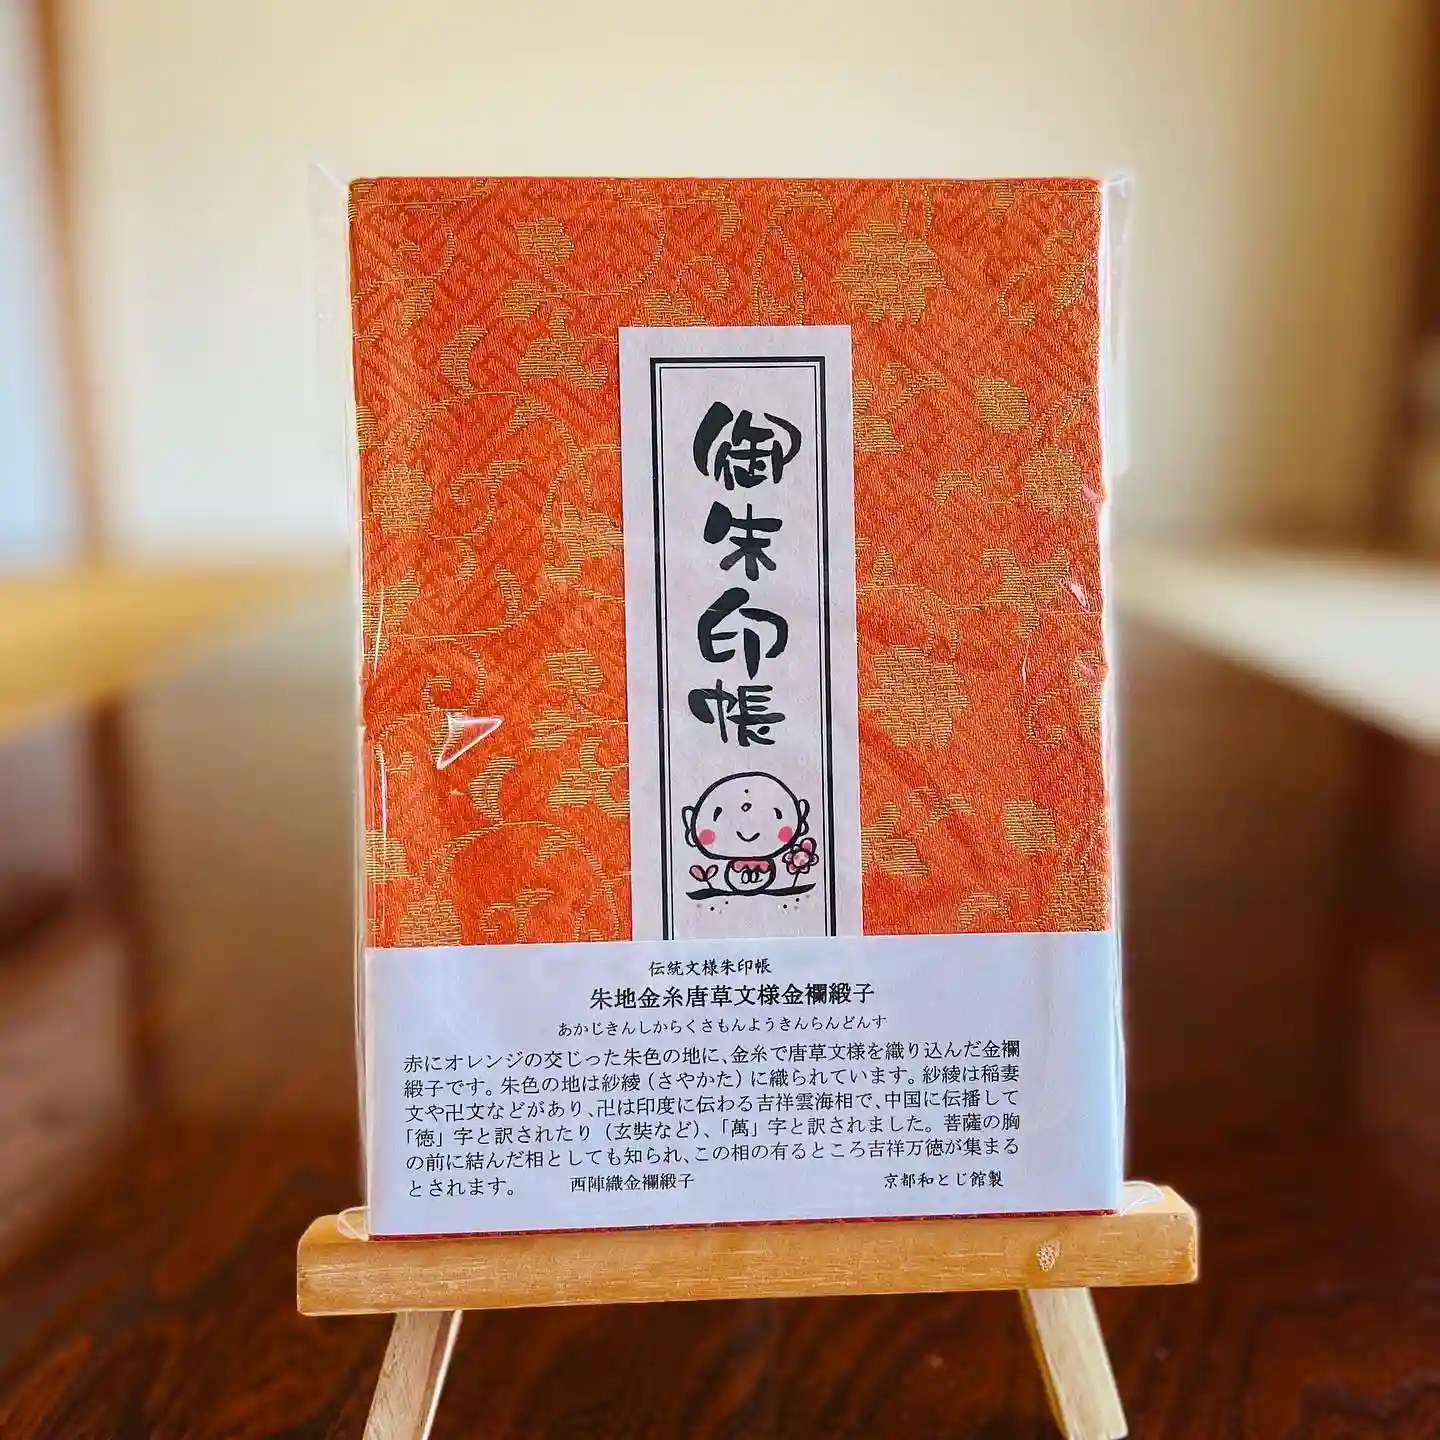 御朱印帳
伝統文様朱印帳
朱地金糸唐草文様金襴緞子
あかじきんしからくさもんようきんらんどんす
赤にオレンジの交じった朱色の地に、金糸で唐草文様を織り込んだ金襴
緞子です。朱色の地は紗綾（さやかた）に織られています。紗綾は稲妻
文や卍文などがあり、卍は印度に伝わる吉祥雲海相で、中国に伝播して
「徳」字と訳されたり（玄奘など）、「萬」字と訳されました。菩薩の胸
の前に結んだ相としても知られ、この相の有るところ吉祥万徳が集まる
とされます。 西陣織金襴緞子 京都和とじ館製